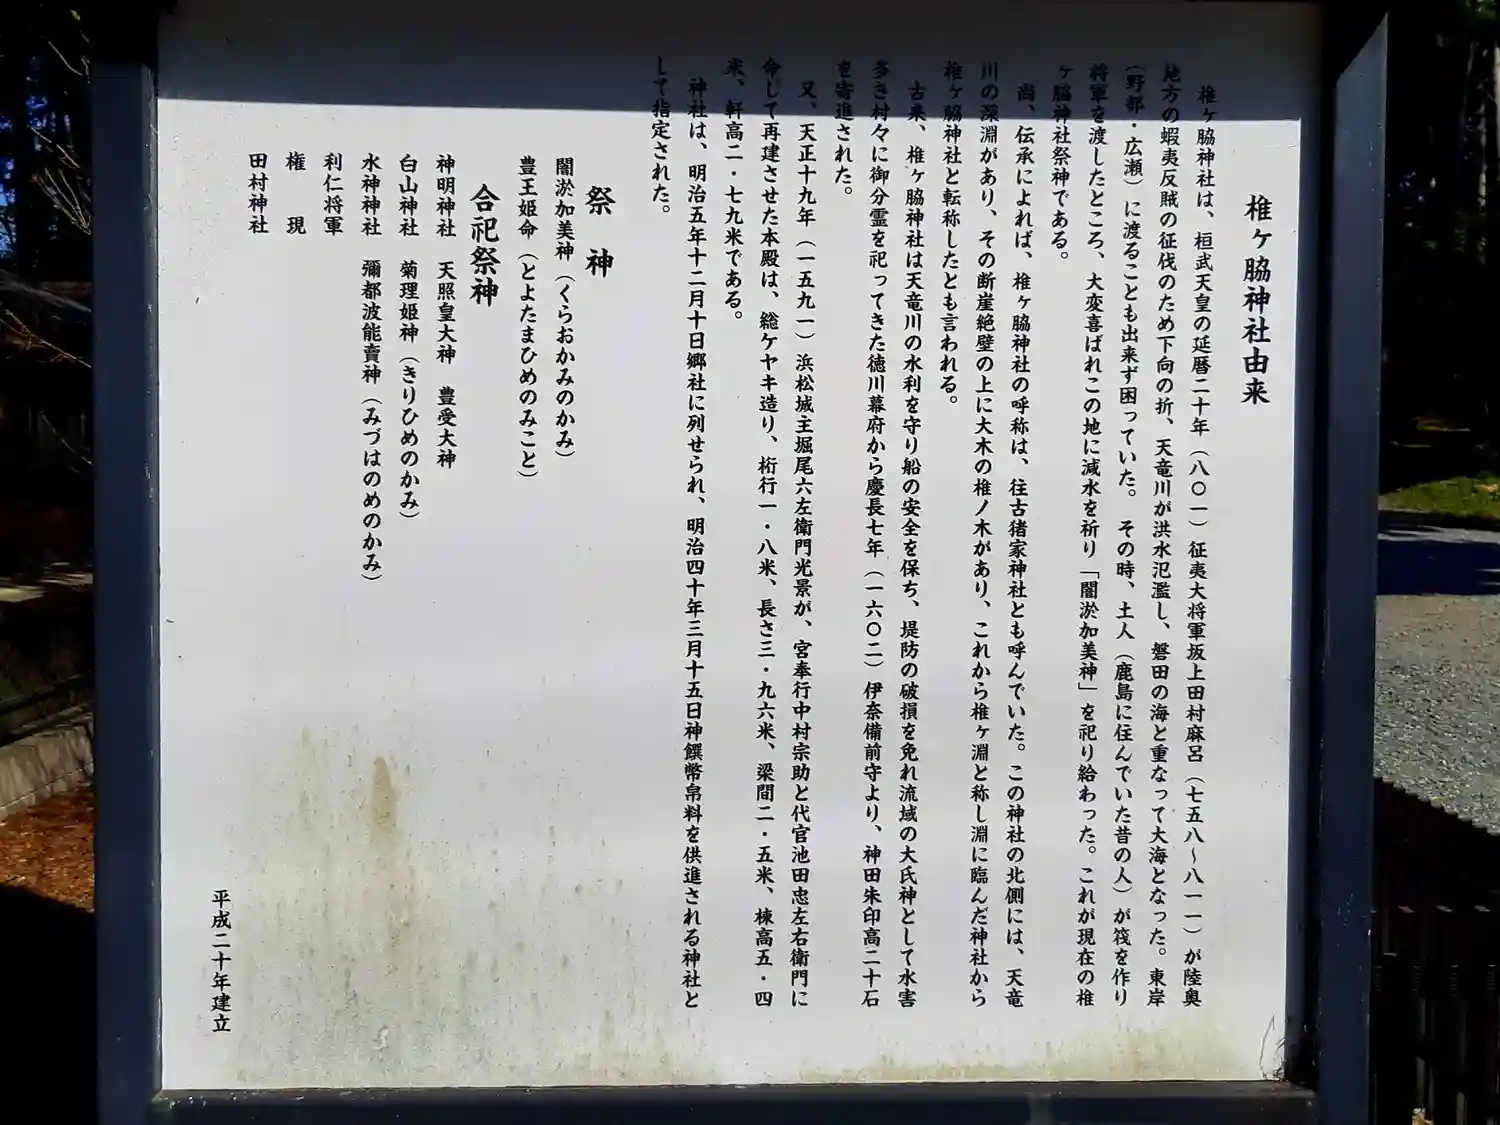 椎ヶ脇神社由来
椎ヶ脇神社は、桓武天皇の延暦二十年（八〇一）征夷大将軍坂上田村麻呂（七五八～八一一）が陸奥
地方の蝦夷反賊の征伐のため下向の折、天竜川が洪水氾濫し、磐田の海と重なって大海となった。東岸
（野部・広瀬）に渡ることも出来ず困っていた。その時、土人（鹿島に住んでいた昔の人）が筏を作り
将軍を渡したところ、大変喜ばれこの地に減水を祈り「闇淤加美神」を祀り給わった。これが現在の椎
ヶ脇神社祭神である。
尚、伝承によれば、椎ヶ脇神社の呼称は、往古猪家神社とも呼んでいた。この神社の北側には、天竜
川の深淵があり、その断崖絶壁の上に大木の椎ノ木があり、これから椎ヶ淵と称し淵に臨んだ神社から
椎ヶ脇神社と転称したとも言われる。
古来、椎ヶ脇神社は天竜川の水利を守り船の安全を保ち、堤防の破損を免れ流域の大氏神として水害
多き村々に御分霊を祀ってきた徳川幕府から慶長七年（一六〇二）伊奈備前守より、神田朱印高二十石
を寄進された。
又、天正十九年（一五九一）浜松城主堀尾六左衛門光景が、宮奉行中村宗助と代官池田忠左右衛門に
命じて再建させた本殿は、総ケヤキ造り、桁行一・八米、長さ三・九六米、梁間二・五米、棟高五・四
米、軒高二・七九米である。
神社は、明治五年十二月十日郷社に列せられ、明治四十年三月十五日神饌幣帛料を供進される神社と
して指定された。
祭神
闇淤加美神（くらおかみのかみ）
豊玉姫命（とよたまひめのみこと）
合祀祭神
神明神社　天照皇大神　豊受大神
白山神社　菊理姫神（きりひめのかみ）
水神神社　彌都波能賣神（みづはのめのかみ）
利仁将軍
権現
田村神社
平成二十年建立